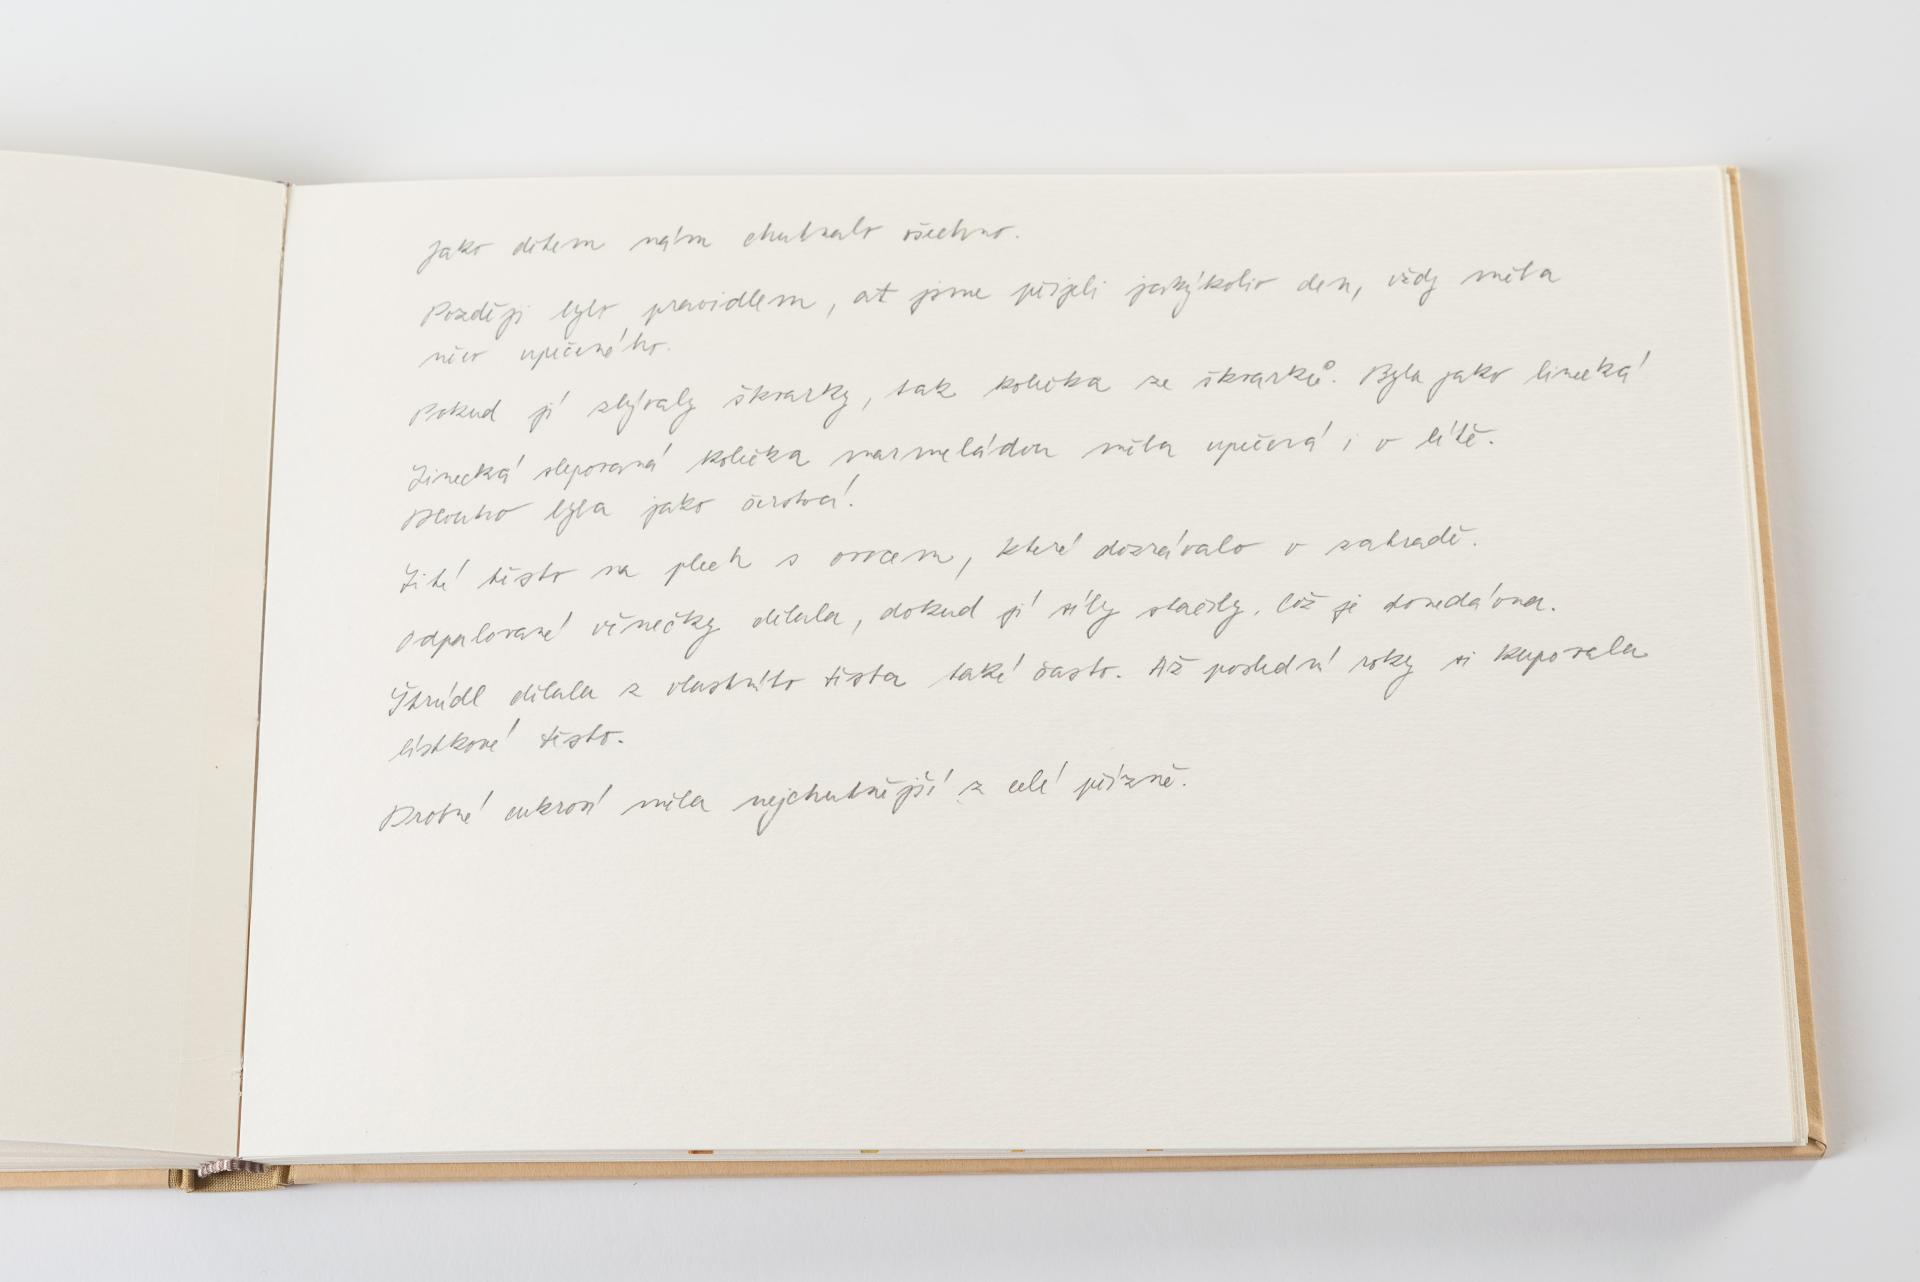 Jako dětem nám chutnalo všechno.
Později bylo pravidlem, ať jsme přijeli jakýkoliv den, vždy měla
něco upečeného.
Pokud jí zbývaly škvarky, tak kolečka ze škvarků. Byla jako linecká
Linecká slepovaná kolečka marmeládou měla upečená i v létě.
Dlouho byla jako čerstvá!
Lité těsto na plech s ovocem, které dozrávalo v zahradě.
Odpalované věnečky dělala, dokud jí síly stačily. Což je donedávna.
Štrúdl dělala z vlastního těsta také často. Až poslední roky si kupovala
lístkové těsto.
Drobné cukroví měla nejchutnější z celé přízně.